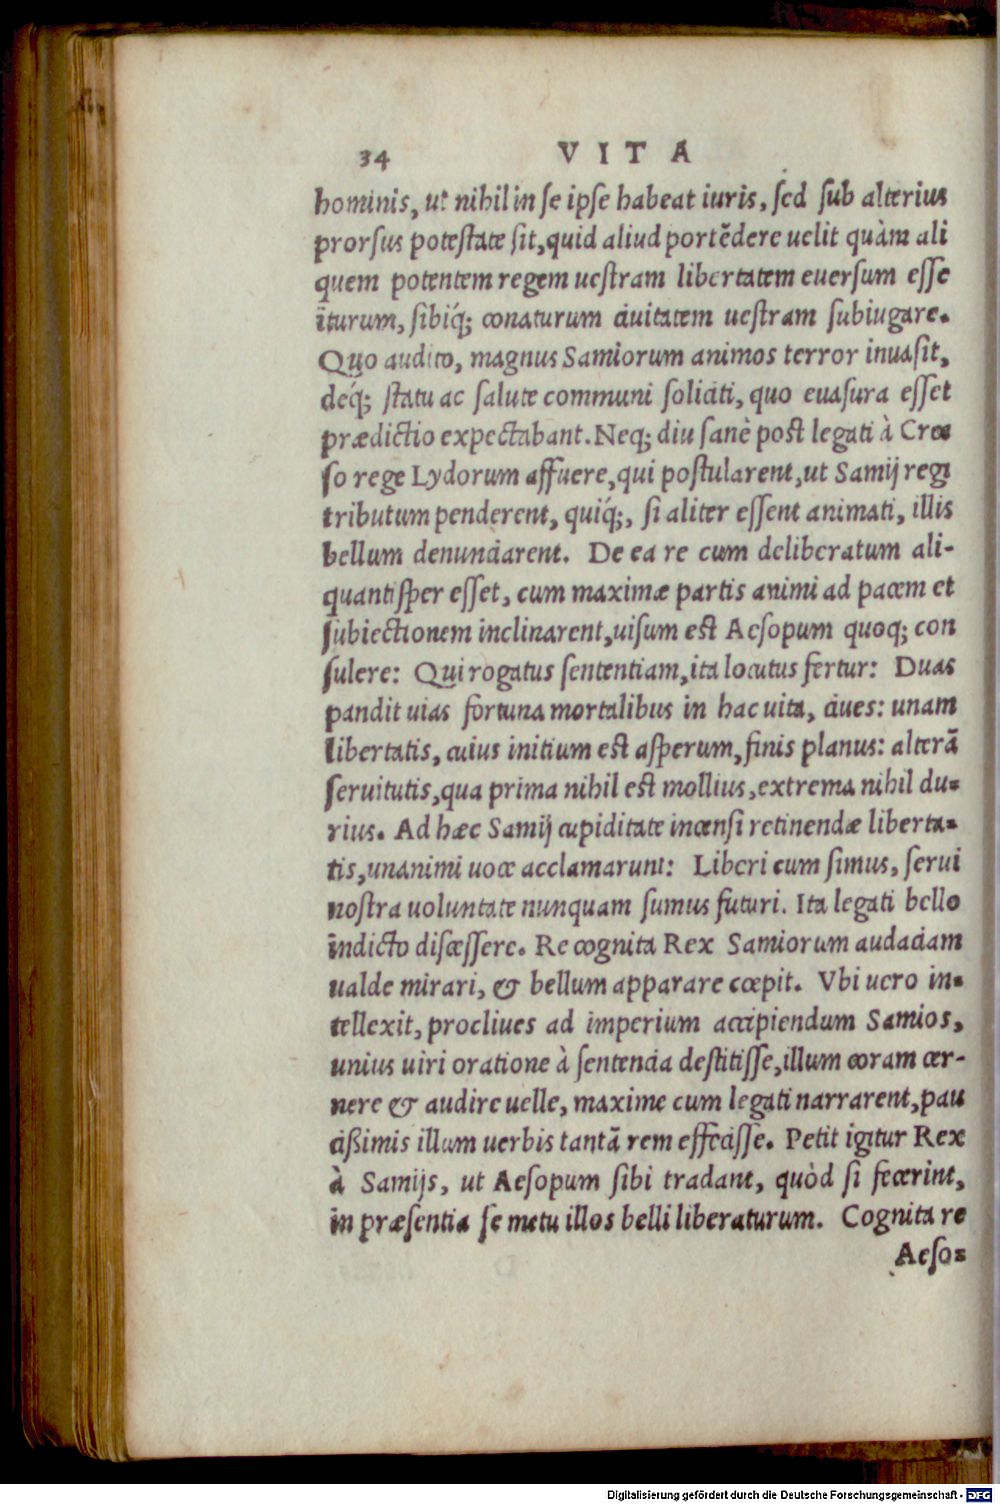 34 VITA
hominis, ut nihil in se ipse habeat iuris, sed sub alterius
prorsus potestate sit, quid aliud portēdere uelit quàm ali
quem potentem regem uestram libertatem euersum esse
īturum, sibiq́; conaturum ciuitatem uestram subiugare.
Quo audito, magnus Samiorum animos terror inuasit,
deq́; statu ac salute communi soliciti, quo euasura esset
prædictio expectabant. Neq; diu sanè post legati à Crœ
so rege Lydorum affuere, qui postularent, ut Samij regi
tributum penderent, quiq́;, si aliter essent animati, illis
bellum denunciarent. De ea re cum deliberatum ali-
quantisper esset, cum maximæ partis animi ad pacem et
subiectionem inclinarent, uisum est Aesopum quoq; con
sulere: Qui rogatus sententiam, ita locutus fertur: Duas
pandit uias fortuna mortalibus in hac uita, ciues: unam
libertatis, cuius initium est asperum, finis planus: alterā
seruitutis, qua prima nihil est mollius, extrema nihil du-
rius. Ad hæc Samij cupiditate incensi retinendæ liberta-
tis, unanimi uoce acclamarunt: Liberi cum simus, serui
nostra uoluntate nunquam sumus futuri. Ita legati bello
īndicto discessere. Re cognita Rex Samiorum audaciam
ualde mirari, & bellum apparare cœpit. Vbi uero in-
tellexit, procliues ad imperium accipiendum Samios,
unius uiri oratione à sentencia destitisse, illum coram cer-
nere & audire uelle, maxime cum legati narrarent, pau
cißimis illum uerbis tantā rem effecisse. Petit igitur Rex
à Samijs, ut Aesopum sibi tradant, quòd si fecerint,
in præsentia se metu illos belli liberaturum. Cognita re
Aeso-
Digitalisierung gefördert durch die Deutsche Forschungsgemeinschaft - DFG